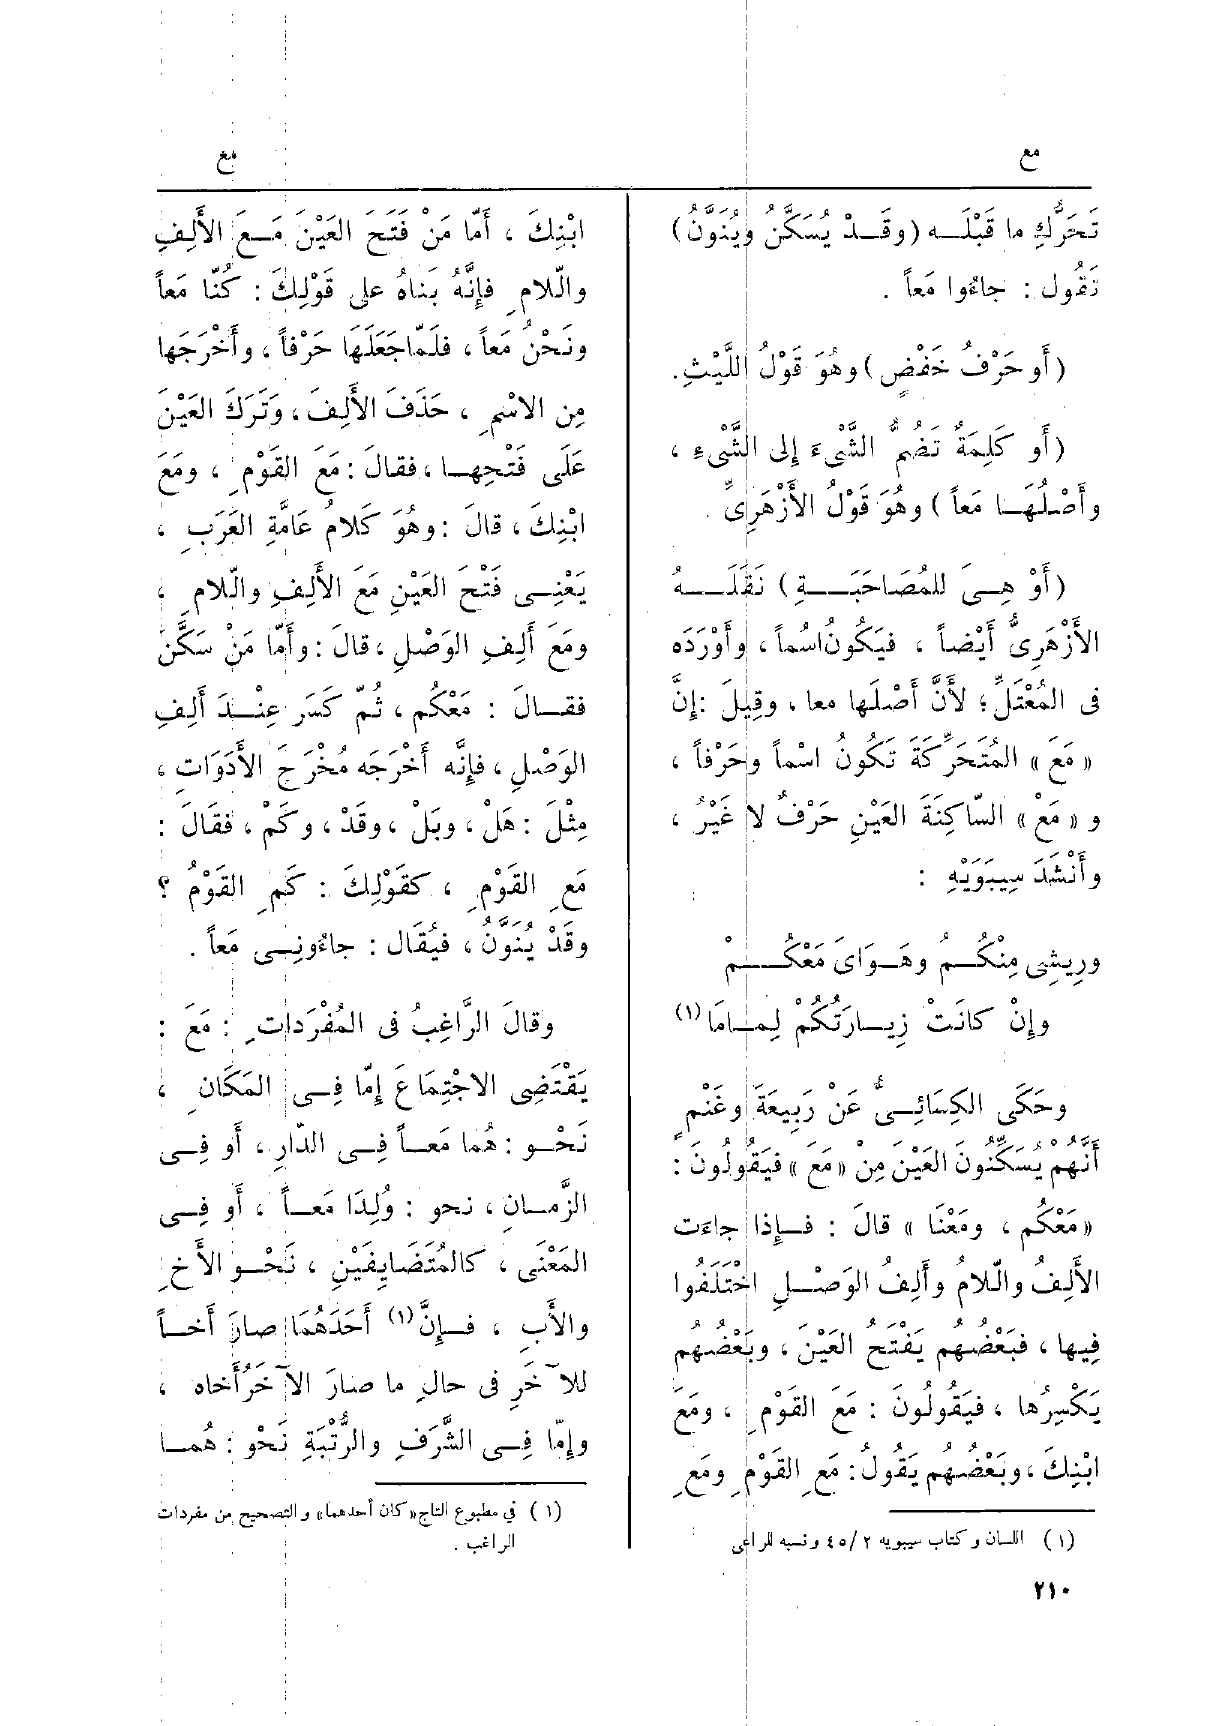 مع
مع
تَحَرُّكِ ما قَبْلَـه (وقَـدْ يُسَكَّنُ ويُنَوَّنُ)
تَقُول : جاءُوا مَعاً .
(أَو حَرْفُ خَفْضٍ) وهُوَ قَوْلُ اللَّيْثِ.
(أَو كَلِمَةٌ تَضُمُّ الشَّىْءَ إلى الشَّىْءِ ،
وأَصْلُهَـا مَعاً) وهُوَ قَوْلُ الأَزْهَرِىِّ .
(أَوْ هِـىَ للمُصَاحَبَـةِ) نَقَلَـهُ
الأَزْهَرِىُّ أَيْضاً ، فيَكُونُ اسْماً ، وأَوْرَدَه
فى المُعْتَلِّ؛ لأَنَّ أَصْلَها معا ، وقِيلَ :إنَّ
«مَعَ» المُتَحَرِّكَةَ تَكُونُ اسْماً وحَرْفاً ،
و «مَعْ» السّاكِنَةَ العَيْنِ حَرْفٌ لا غَيْرُ ،
وأَنْشَدَ سِيبَوَيْهِ :
ورِيشِى مِنْكُـمُ وهَـوَاىَ مَعْكُـمْ
وإنْ كانَتْ زِيـارَتُكُمْ لِمـامَا (١)
وحَكَى الكِسَائِـىُّ عَنْ رَبِيعَةَ وغَنْمٍ
أَنَّهُمْ يُسَكِّنُونَ العَيْنَ مِنْ «مَعَ» فيَقُولُونَ :
«مَعْكُم ، ومَعْنَا» قالَ : فـإِذا جاءَت
الأَلِفُ والّلامُ وأَلِفُ الوَصْـلِ اخْتَلَفُوا
فِيها ، فبَعْضُهم يَفْتَحُ العَيْنَ ، وبَعْضُهم
يَكْسِرُها ، فيَقُولُونَ : مَعَ القَوْمِ ، ومَعَ
ابْنِكَ ، وبَعْضُهم يَقُولُ: مَعِ القَوْمِ ومَعِ
(١) اللسان وكتاب سيبويه ٢/ ٤٥ ونسبه للراعى
٢١٠
ابْنِكَ ، أَمّا مَنْ فَتَحَ العَيْنَ مَـعَ الأَلِفِ
والّلامِ فإِنَّهُ بَناهُ على قَوْلِكَ : كُنّا مَعاً
ونَحْنُ مَعاً ، فلَمّا جَعَلَهَا حَرْفاً ، وأَخْرَجَها
مِن الاسْمِ ، حَذَفَ الأَلِفَ ، وتَرَكَ العَيْنَ
عَلَى فَتْحِهـا ، فقالَ : مَعَ القَوْمِ ، ومَعَ
ابْنِكَ ، قالَ : وهُوَ كَلامُ عَامَّةِ العَرَبِ ،
يَعْنِـى فَتْحَ العَيْنِ مَعَ الأَلِفِ والّلامِ ،
ومَعَ أَلِفِ الوَصْلِ ، قالَ : وأَمّا مَنْ سَكَّنَ
فقـالَ : مَعْكُم ، ثُمّ كَسَرَ عِنْـدَ أَلِفِ
الوَصْلِ ، فإِنَّه أَخْرَجَه مُخْرَجَ الأَدَوَاتِ ،
مِثْلَ : هَلْ ، وبَلْ ، وقَدْ ، وكَمْ ، فقَالَ :
مَعِ القَوْمِ ، كقَوْلِكَ : كَمِ القَوْمُ ؟
وقَدْ يُنَوَّنُ ، فيُقَال : جاءُونِـى مَعاً .
وقالَ الرَّاغِبُ فى المُفْرَدَاتِ : مَعَ :
يَقْتَضِى الاجْتِمَاعَ إمّا فِـى المَكَانِ ،
نَحْـو : هُما مَعـاً فِـى الدّارِ ، أَو فِـى
الزَّمـانِ ، نحو : وُلِدَا مَعـاً ، أَو فِـى
المَعْنَى ، كالمُتَضَايِفَيْنِ ، نَحْـو الأَخِ
والأَبِ ، فـإِنَّ (١) أَحَدَهُمَا صارَ أَخـاً
للآخَرِ فى حالِ ما صارَ الآخَرُ أَخاه ،
وإمّا فِـى الشَّرَفِ والرُّتْبَةِ نَحْوِ : هُمـا
(١) في مطبوع التاج «كان أحدهما» والتصحيح من مفردات
الراغب .